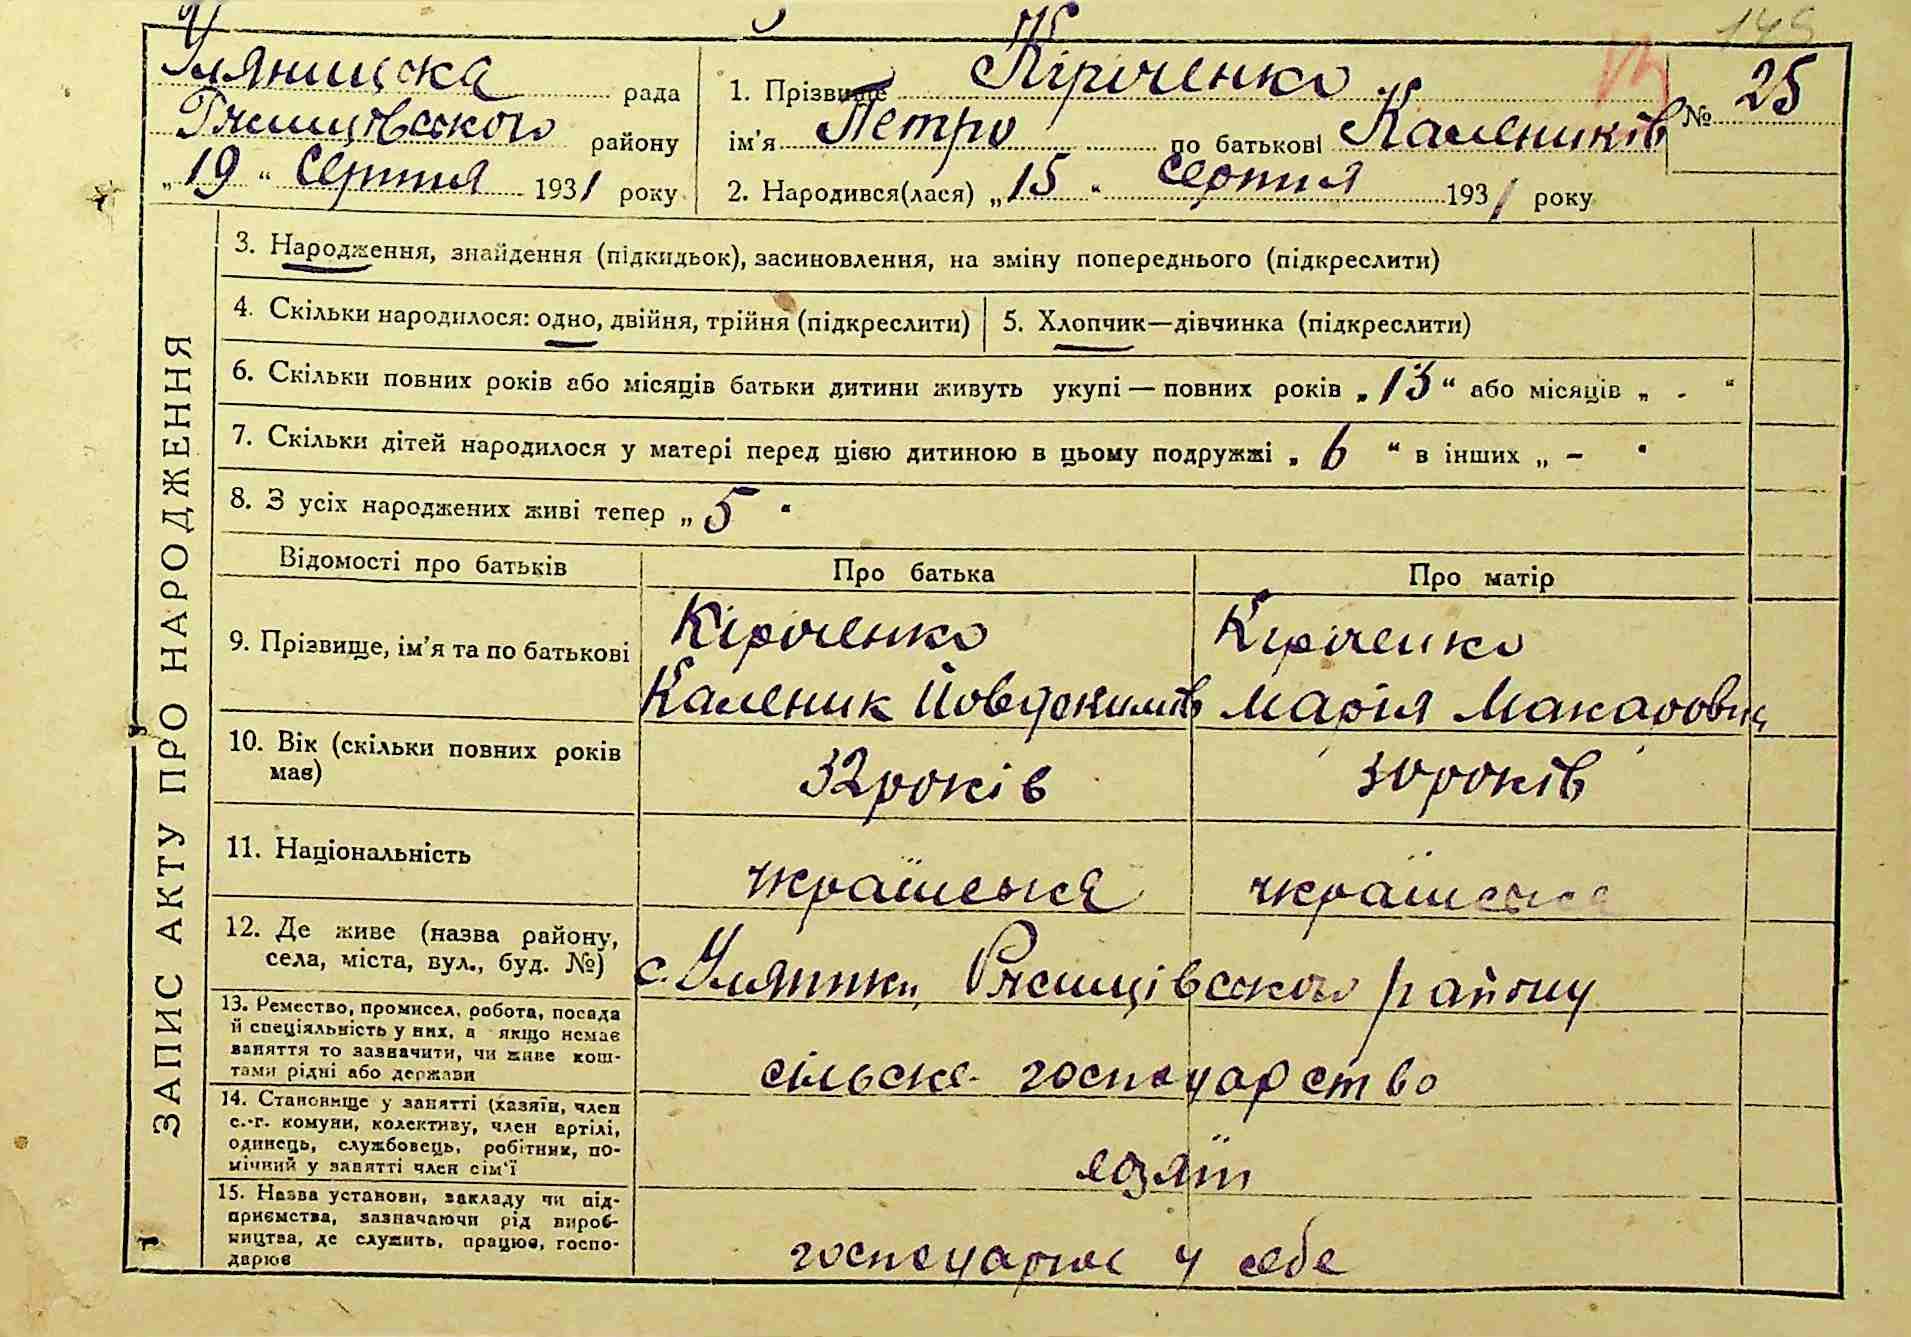 149
Уляницька рада
Ржищівського району
„19" серпня 1931 року
1. Прізвище Кіріченко
ім'я Петро по батькові Калеників
№ 25
2. Народився(лася) „15" серпня 1931 року
ЗАПИС АКТУ ПРО НАРОДЖЕННЯ
3. Народження, знайдення (підкидьок), засиновлення, на зміну попереднього (підкреслити)
4. Скільки народилося: одно, двійня, трійня (підкреслити)
5. Хлопчик—дівчинка (підкреслити)
6. Скільки повних років або місяців батьки дитини живуть укупі — повних років „13" або місяців „ - "
7. Скільки дітей народилося у матері перед цією дитиною в цьому подружжі „6" в інших „ - "
8. З усіх народжених живі тепер „5"
Відомості про батьків
Про батька
Про матір
9. Прізвище, ім'я та по батькові
Кіріченко
Каленик
Кіріченко
Марія Макаровна
10. Вік (скільки повних років
має)
32 років
30 років
11. Національність
українська
українська
12. Де живе (назва району,
села, міста, вул., буд. №)
с. Уляники, Ржищівського району
13. Ремество, промисел, робота, посада
й спеціяльність у них, а якщо немає
заняття то зазначити, чи живе кош-
тами рідні або держави
сільске господарство
14. Становище у занятті (хазяїн, член
с.-г. комуни, колективу, член артілі,
одинець, службовець, робітник, по-
мічний у занятті член сім'ї
хазяїн
15. Назва установи, закладу чи під-
приємства, зазначаючи рід вироб-
ництва, де служить, працює, госпо-
дарює
господарює у себе